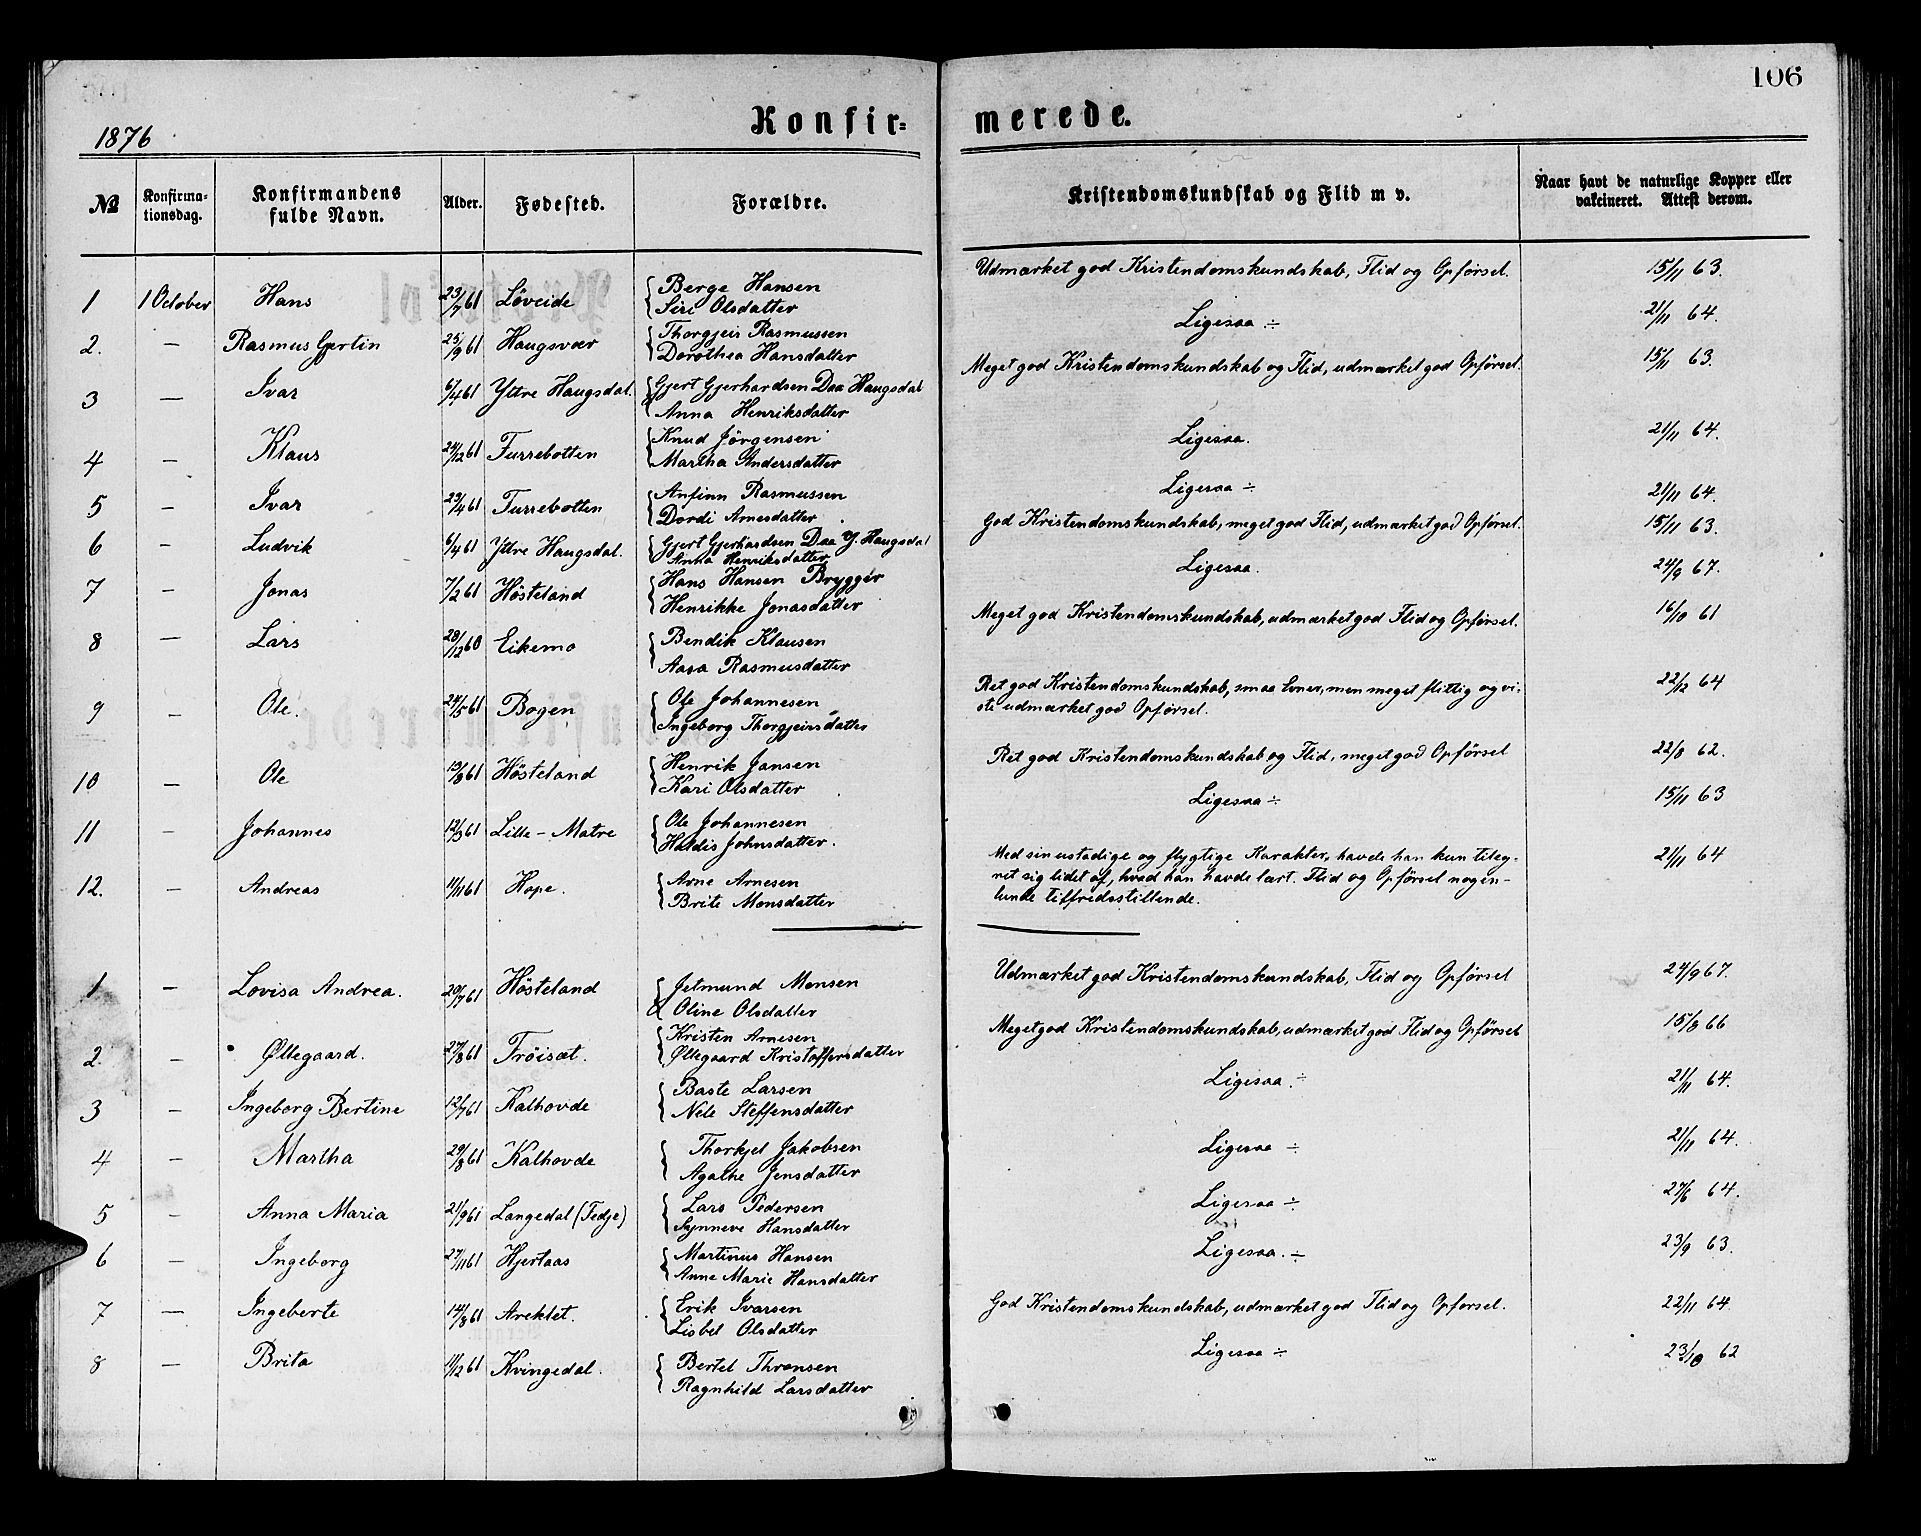 106
1876
Konfir= merede.
№ Konfirma-tionsdag. Konfirmandens fulde Navn. Alder. Fødested. Forældre. Kristendomskundskab og Flid m v. Naar havt de naturlige Kopper eller vakcineret. Attest derom.
1 1 October Hans 23/7 61 Løveide Berge Hansen Udmærket god Kristendomskundskab, Flid og Opførsel. 15/11 63.
Siri Olsdatter
2. — Rasmus Gjertin 25/9 61 Haugsvær Thorgjeis Rasmussen Ligesaa ÷ 21/11 64.
Dorothea Hansdatter
3 — Ivar 6/4 61 Yttre Haugsdal. Gjert Gjerhardsen Daa Haugsdal Meget god Kristendomskundskab og Flid, udmærket god Opførsel. 15/11 63.
Anna Henriksdatter
4 — Klaus 24/12 61 Furrebotten Knud Jörgensen Ligesaa. 21/11 64.
Martha Andersdatter
5 — Ivar 23/4 61 Furrebotten Anfinn Rasmussen Ligesaa ÷ 21/11 64.
Dordi Arnesdatter
6 — Ludvik 6/4 61 Yttre Haugsdal. Gjert Gjerhardsen Daa Y. Haugsdal God Kristendomskundskab, meget god Flid, udmærket god Opførsel. 15/11 63.
Anna Henriksdatter
7 — Jonas 7/2 61 Hösteland Hans Hansen Brygger Ligesaa. 24/9 67.
Henrikke Jonasdatter
8 — Lars 28/12 60 Eikemo Bendik Klausen Meget god Kristendomskundskab, udmærket god Flid og Opførsel. 16/10 61
Aasa Rasmusdatter
9 — Ole. 24/5 61 Bogen Ole Johannesen Ret god Kristendomskundskab, smaa Evner, men meget flittig og vi- 22/12 64
Ingeborg Thorgjeirsdatter ste udmærket god Opførsel.
10 — Ole 13/8 61 Hösteland Henrik Jansen Ret god Kristendomskundskab og Flid, meget god Opførsel 22/8 62.
Kari Olsdatter
11 — Johannes 12/3 61 Lille-Matre Ole Johannesen Ligesaa ÷ 15/11 63
Haldis Johnsdatter.
12. — Andreas 11/11 61 Hope. Arne Arnesen Med sin ustadige og flygtige Karakter, havde han kun tileg- 21/11 64
Brite Monsdatter net sig lidet af, hvad han havde lært. Flid og Opførsel nogen-
lunde tilfredsstillende.
1 — Lovisa Andrea. 20/7 61 Hösteland Jetmund Monsen Udmærket god Kristendomskundskab, Flid og Opførsel 24/9 67.
Oline Olsdatter
2. — Øllegaard. 27/8 61 Fröiset. Kristen Arnesen Meget god Kristendomskundskab, udmærket god Flid og Opførsel 15/8 66
Øllegaard Kristoffersdatter
3 — Ingeborg Bertine 12/7 61 Kalhovde Baste Larsen Ligesaa. ÷ 21/11 64.
Nele Steffensdatter
4 — Martha 29/8 61 Kalhovde Thorkjel Jakobsen Ligesaa ÷ 21/11 64.
Agathe Jensdatter
5 — Anna Maria 21/9 61 Langedal (Fedje) Lars Pedersen Ligesaa ÷ 27/6 64.
Synneve Hansdatter
6 — Ingeborg 27/11 61 Hjertaas Martinus Hansen Ligesaa. ÷ 23/9 63.
Anne Marie Hansdatter
7 — Ingeberte 14/8 61 Areklet. Erik Ivarsen God Kristendomskundskab, udmærket god Flid og Opførsel. 22/11 64.
Lisbet Olsdatter
8 — Brita 11/12 61 Kvingedal. Bertel Thronsen Ligesaa ÷ 23/10 62
Ragnhild Larsdatter